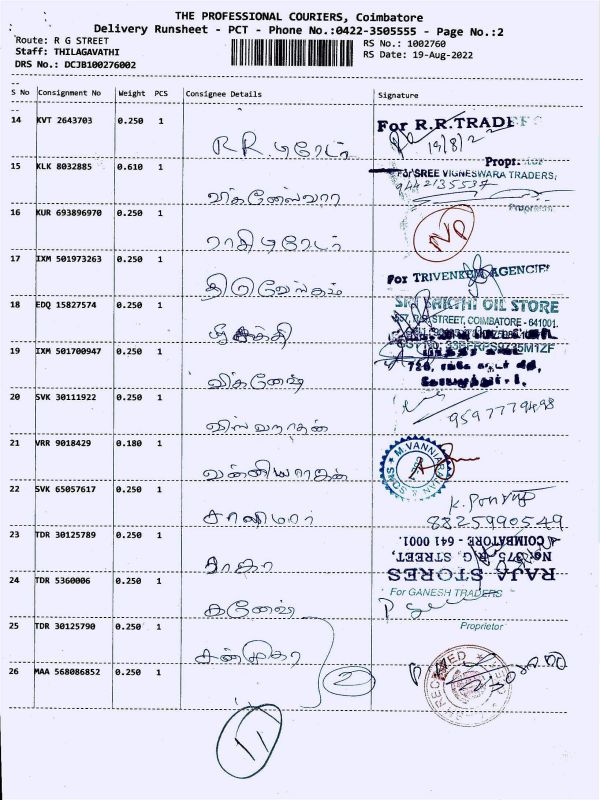 THE PROFESSIONAL COURIERS, Coimbatore
Delivery Runsheet - PCT - Phone No.:0422-3505555 - Page No.:2
Route: R G STREET
RS No.: 1002760
Staff: THILAGAVATHI
RS Date: 19-Aug-2022
DRS No.: DCJB100276002
S No Consignment No Weight PCS Consignee Details Signature
14 KVT 2643703 0.250 1
R.R. டிரேடர்
For R.R.TRADERS
19/8/2
Propr.
15 KLK 8032885 0.610 1
விக்னேஸ்வரா
For SREE VIGNESWARA TRADERS,
9442135537
Proprietor
16 KUR 693896970 0.250 1
ராசி டிரேடர்
N/D
17 IXM 501973263 0.250 1
திருவேங்கடம்
For TRIVENKEM AGENCIES
18 EDQ 15827574 0.250 1
ஸ்ரீசக்தி
SRI SHKTHI OIL STORE
STREET, COIMBATORE - 641001.
19 IXM 501700947 0.250 1
விக்னேஷ்
20 SVK 30111922 0.250 1
விஸ்வநாதன்
9597779498
21 VRR 9018429 0.180 1
வன்னியராஜன்
M.VANNIARAJAN & SONS
22 SVK 65057617 0.250 1
சாலிமார்
8825990549
23 TDR 30125789 0.250 1
ராஜா
RAJA STORES
No. 375, R.G. STREET,
COIMBATORE - 641 0001.
24 TDR 5360006 0.250 1
கணேஷ்
For GANESH TRADERS
Proprietor
25 TDR 30125790 0.250 1
சண்முகா
26 MAA 568086852 0.250 1
2
RECEIVED
11